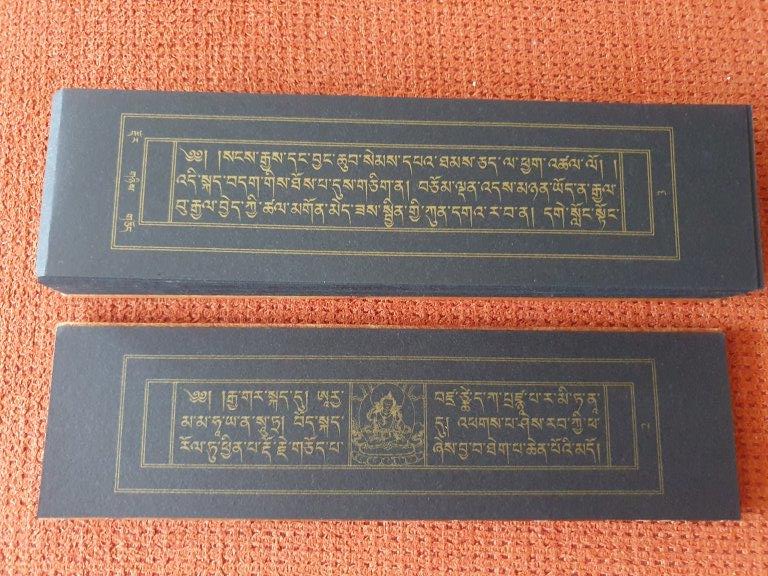 ༄༅། །སངས་རྒྱས་དང་བྱང་ཆུབ་སེམས་དཔའ་ཐམས་ཅད་ལ་ཕྱག་འཚལ་ལོ། །
འདི་སྐད་བདག་གིས་ཐོས་པ་དུས་གཅིག་ན། བཅོམ་ལྡན་འདས་མཉན་ཡོད་ན་རྒྱལ་
བུ་རྒྱལ་བྱེད་ཀྱི་ཚལ་མགོན་མེད་ཟས་སྦྱིན་གྱི་ཀུན་དགའ་ར་བ་ན། དགེ་སློང་སྟོང་
༄༅། །རྒྱ་གར་སྐད་དུ། ཨཱརྱ་ བཛྲ་ཙྪེ་ད་ཀ་པྲཛྙཱ་པ་ར་མི་ཏ་ནཱ་
མ་མ་ཧཱ་ཡ་ན་སཱུ་ཏྲ། བོད་སྐད་ དུ། འཕགས་པ་ཤེས་རབ་ཀྱི་ཕ་
རོལ་ཏུ་ཕྱིན་པ་རྡོ་རྗེ་གཅོད་པ་ ཞེས་བྱ་བ་ཐེག་པ་ཆེན་པོའི་མདོ།